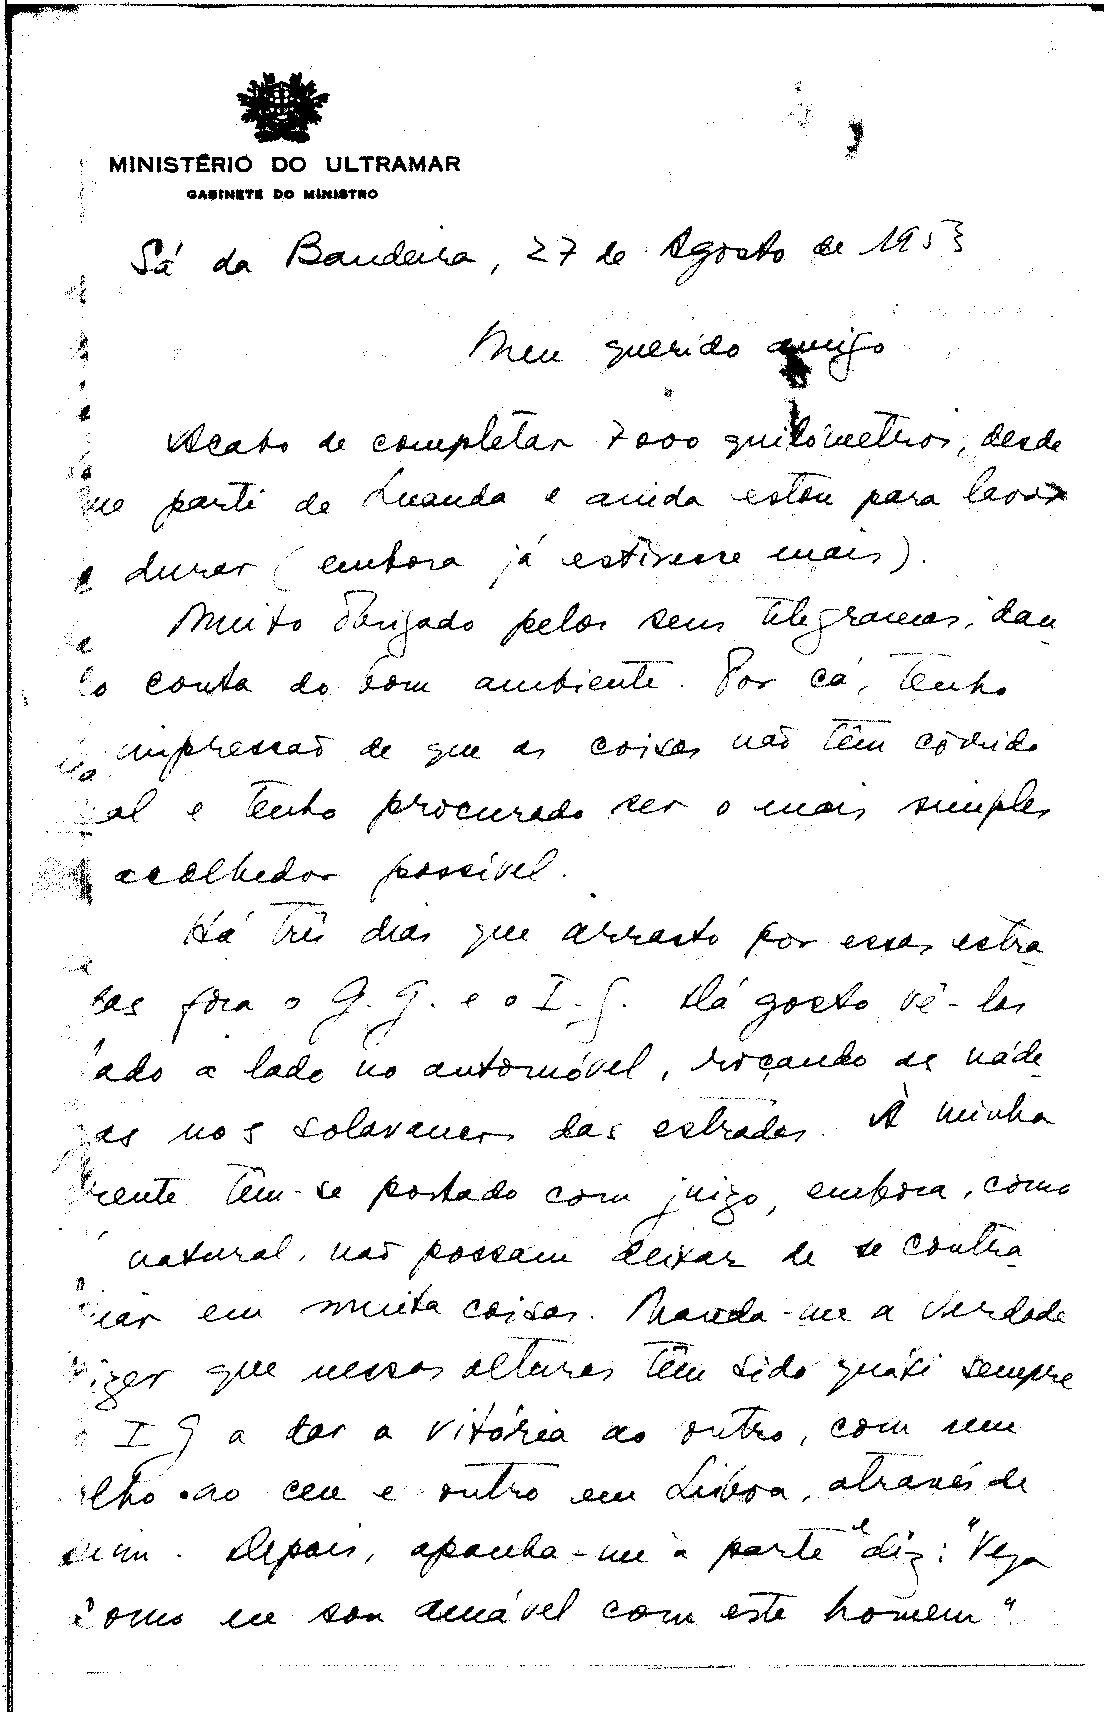 MINISTÉRIO DO ULTRAMAR
GABINETE DO MINISTRO
Sá da Bandeira, 27 de Agosto de 1953
Meu querido amigo
Acabo de completar 7000 quilómetros, desde
que parti de Luanda e ainda estou para lavar
e durar (embora já estivesse mais).
Muito obrigado pelos seus telegramas, dan
do conta do bom ambiente. Por cá, tenho
impressão de que as coisas não têm corrido
mal e tenho procurado ser o mais simples
acolhedor possível.
Há três dias que arrasto por essas estra
das fora o G. G. e o I. G. Dá gosto vê-los
lado a lado no automóvel, roçando as náde
gas nos solavancos das estradas. À minha
frente têm-se portado com juizo, embora, como
é natural, não possam deixar de se contra
riar em muita coisa. Manda-me a verdade
dizer que nessas alturas têm sido quási sempre
o I G a dar a vitória ao outro, com um
olho ao ceu e outro em Lisboa, através de
mim. Depois, apanha-me à parte e diz: "Veja
como eu sou amável com este homem"